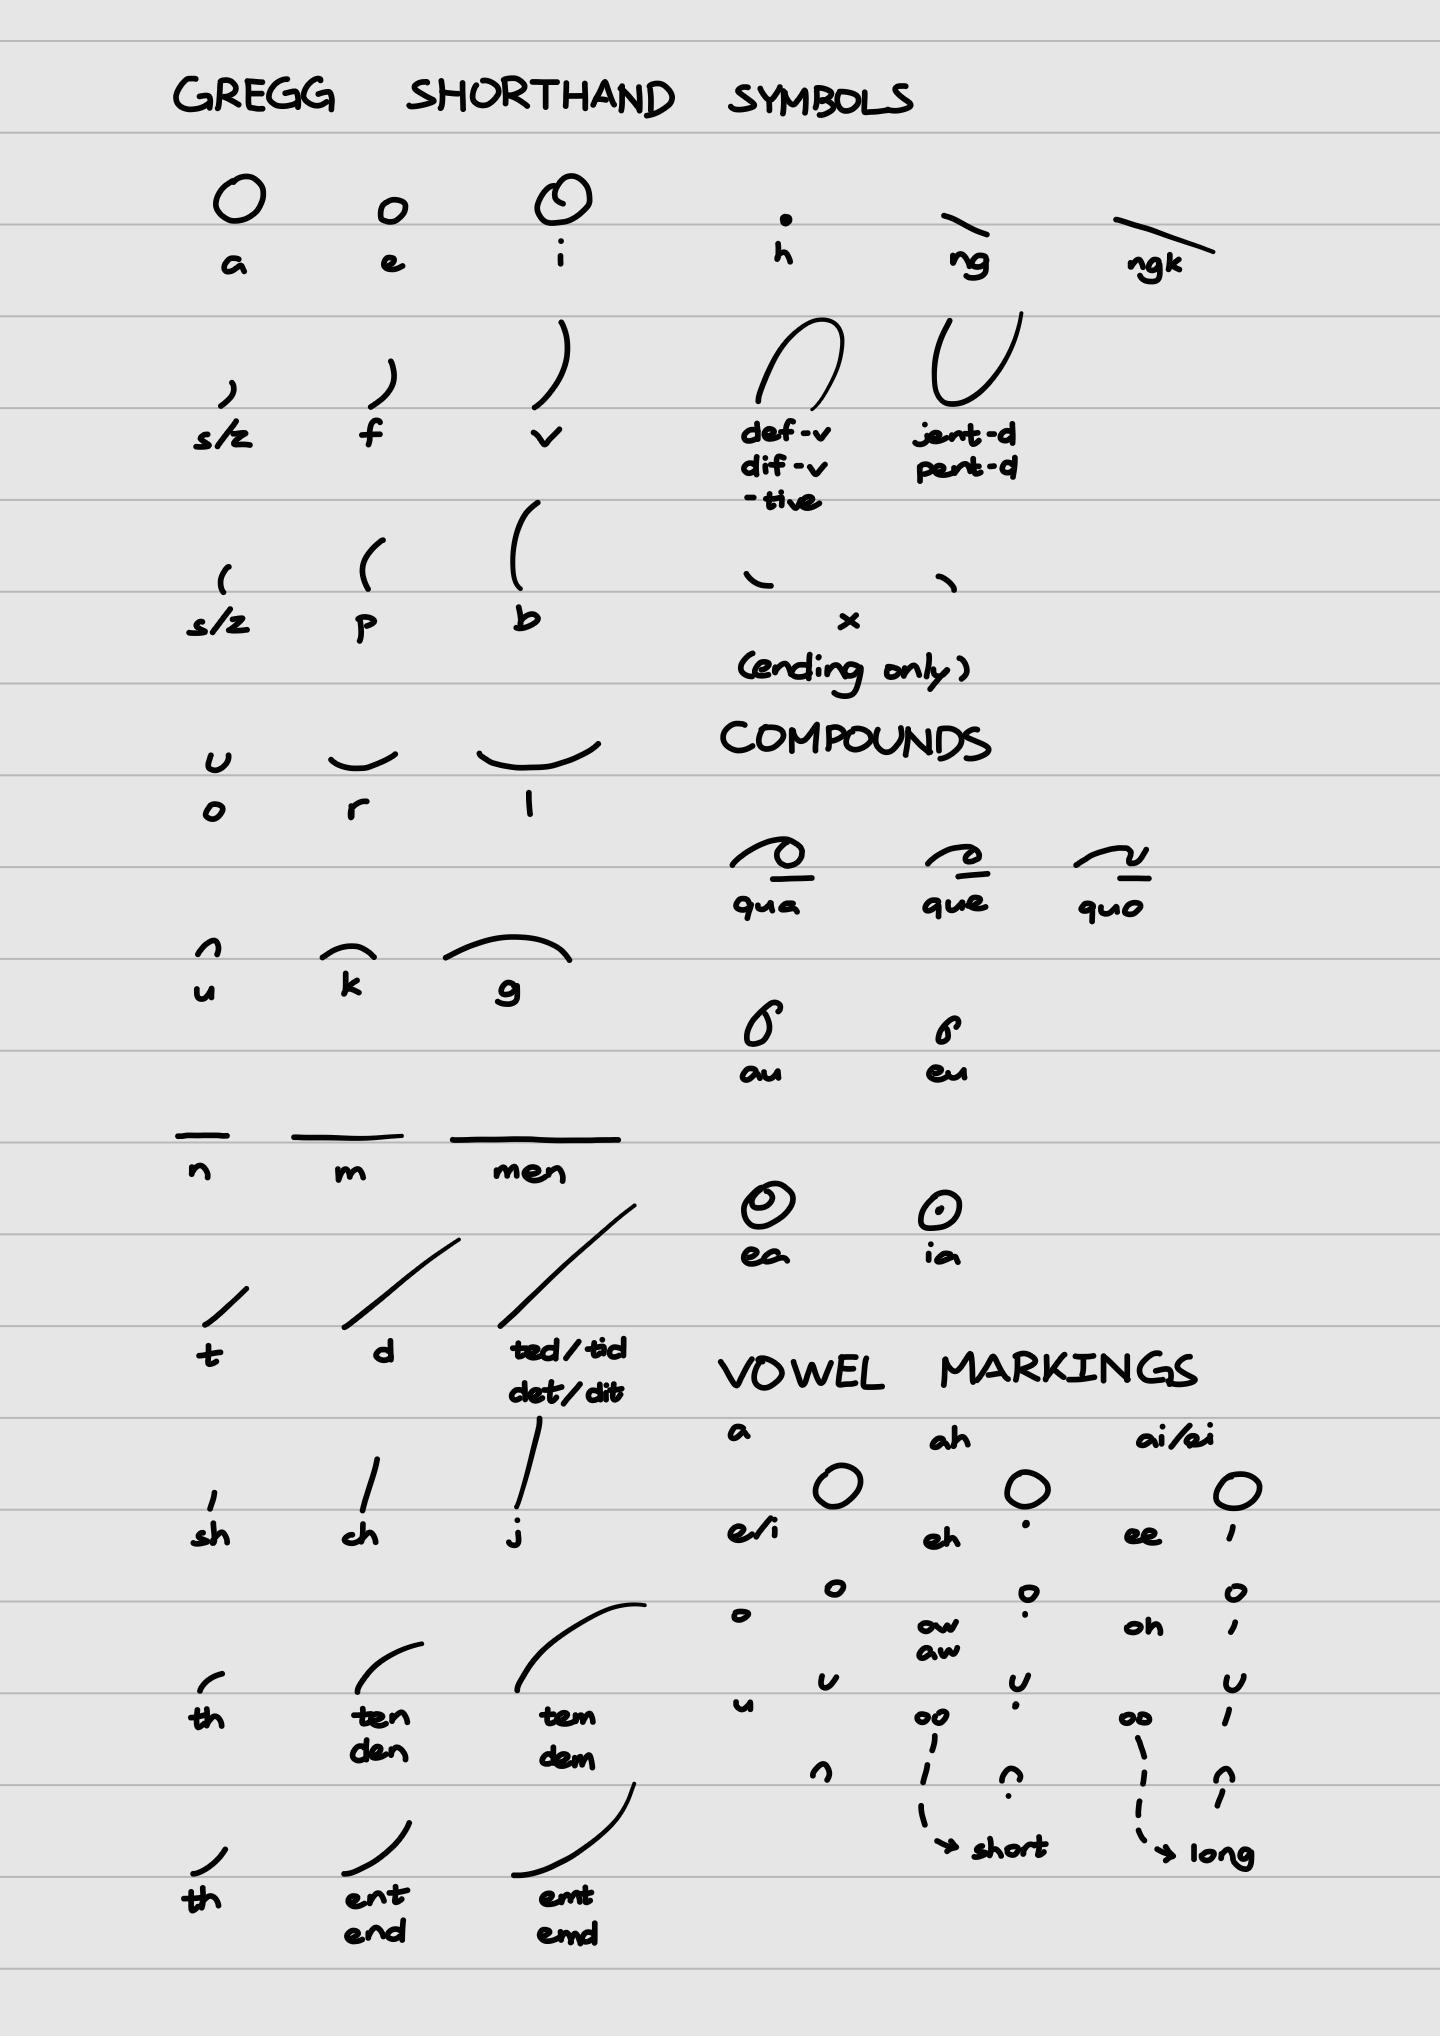 GREGG SHORTHAND SYMBOLS
a e i h ng ngk
s/z f v def-v jent-d
dif-v pent-d
-tive
s/z p b x
(ending only)
COMPOUNDS
o r l
qua que quo
u k g
au eu
n m men
ea ia
t d ted/tid
det/dit
VOWEL MARKINGS
a ah ai/ei
sh ch j e/i eh ee
o ow oh
aw
th ten tem u oo oo
den dem
short long
th ent emt
end emd